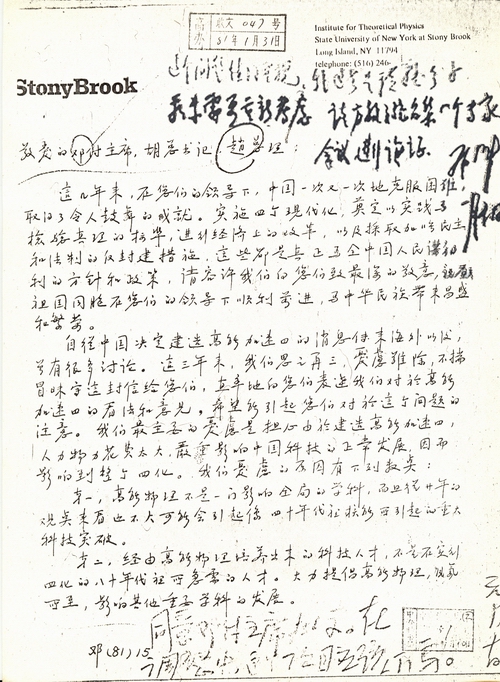 收文 047 号
81年1月31日
Institute for Theoretical Physics
State University of New York at Stony Brook
Long Island, NY 11794
telephone: (516) 246-
StonyBrook
请方毅召集一个专家
会议进行论证
敬爱的邓付主席,胡总书记,赵总理:
这几年来,在您们的领导下,中国一次又一次地克服困难,
取得了令人鼓舞的成就。实施四个现代化,奠定以实践为
检验真理的标准,进行经济上的改革,以及採取加强民主
和法制的反封建措施,这些都是真正为全中国人民谋福
利的方针和政策,请容许我们向您们致最深的敬意,祝愿
祖国同胞在您们的领导下顺利前进,为中华民族带来昌盛
和繁荣。
自从中国决定建造高能加速四的消息传来海外以后,
曾有很多讨论。这三年来,我们思之再三,爱虑难除,不揣
冒昧写这封信给您们,直率地向您们表达我们对於高能
加速四的看法和意见。希望能引起您们对於这个问题的
注意。我们最主要的忧虑是担心由於建造高能加速四,
人力物力花费太大,严重影响中国科技的正常发展,因而
影响到整个四化。我们忧虑的原因有下列数点:
第一,高能物理不是一门影响全局的学科,而且从廿年的
观点来看也不大可能会引起像四十年代初核能所引起的重大
科技突破。
第二,经由高能物理培养出来的科技人才,不是在实现
四化的八十年代所急需的人才。大力提倡高能物理,
影响其他重要学科的发展。
邓(81)15